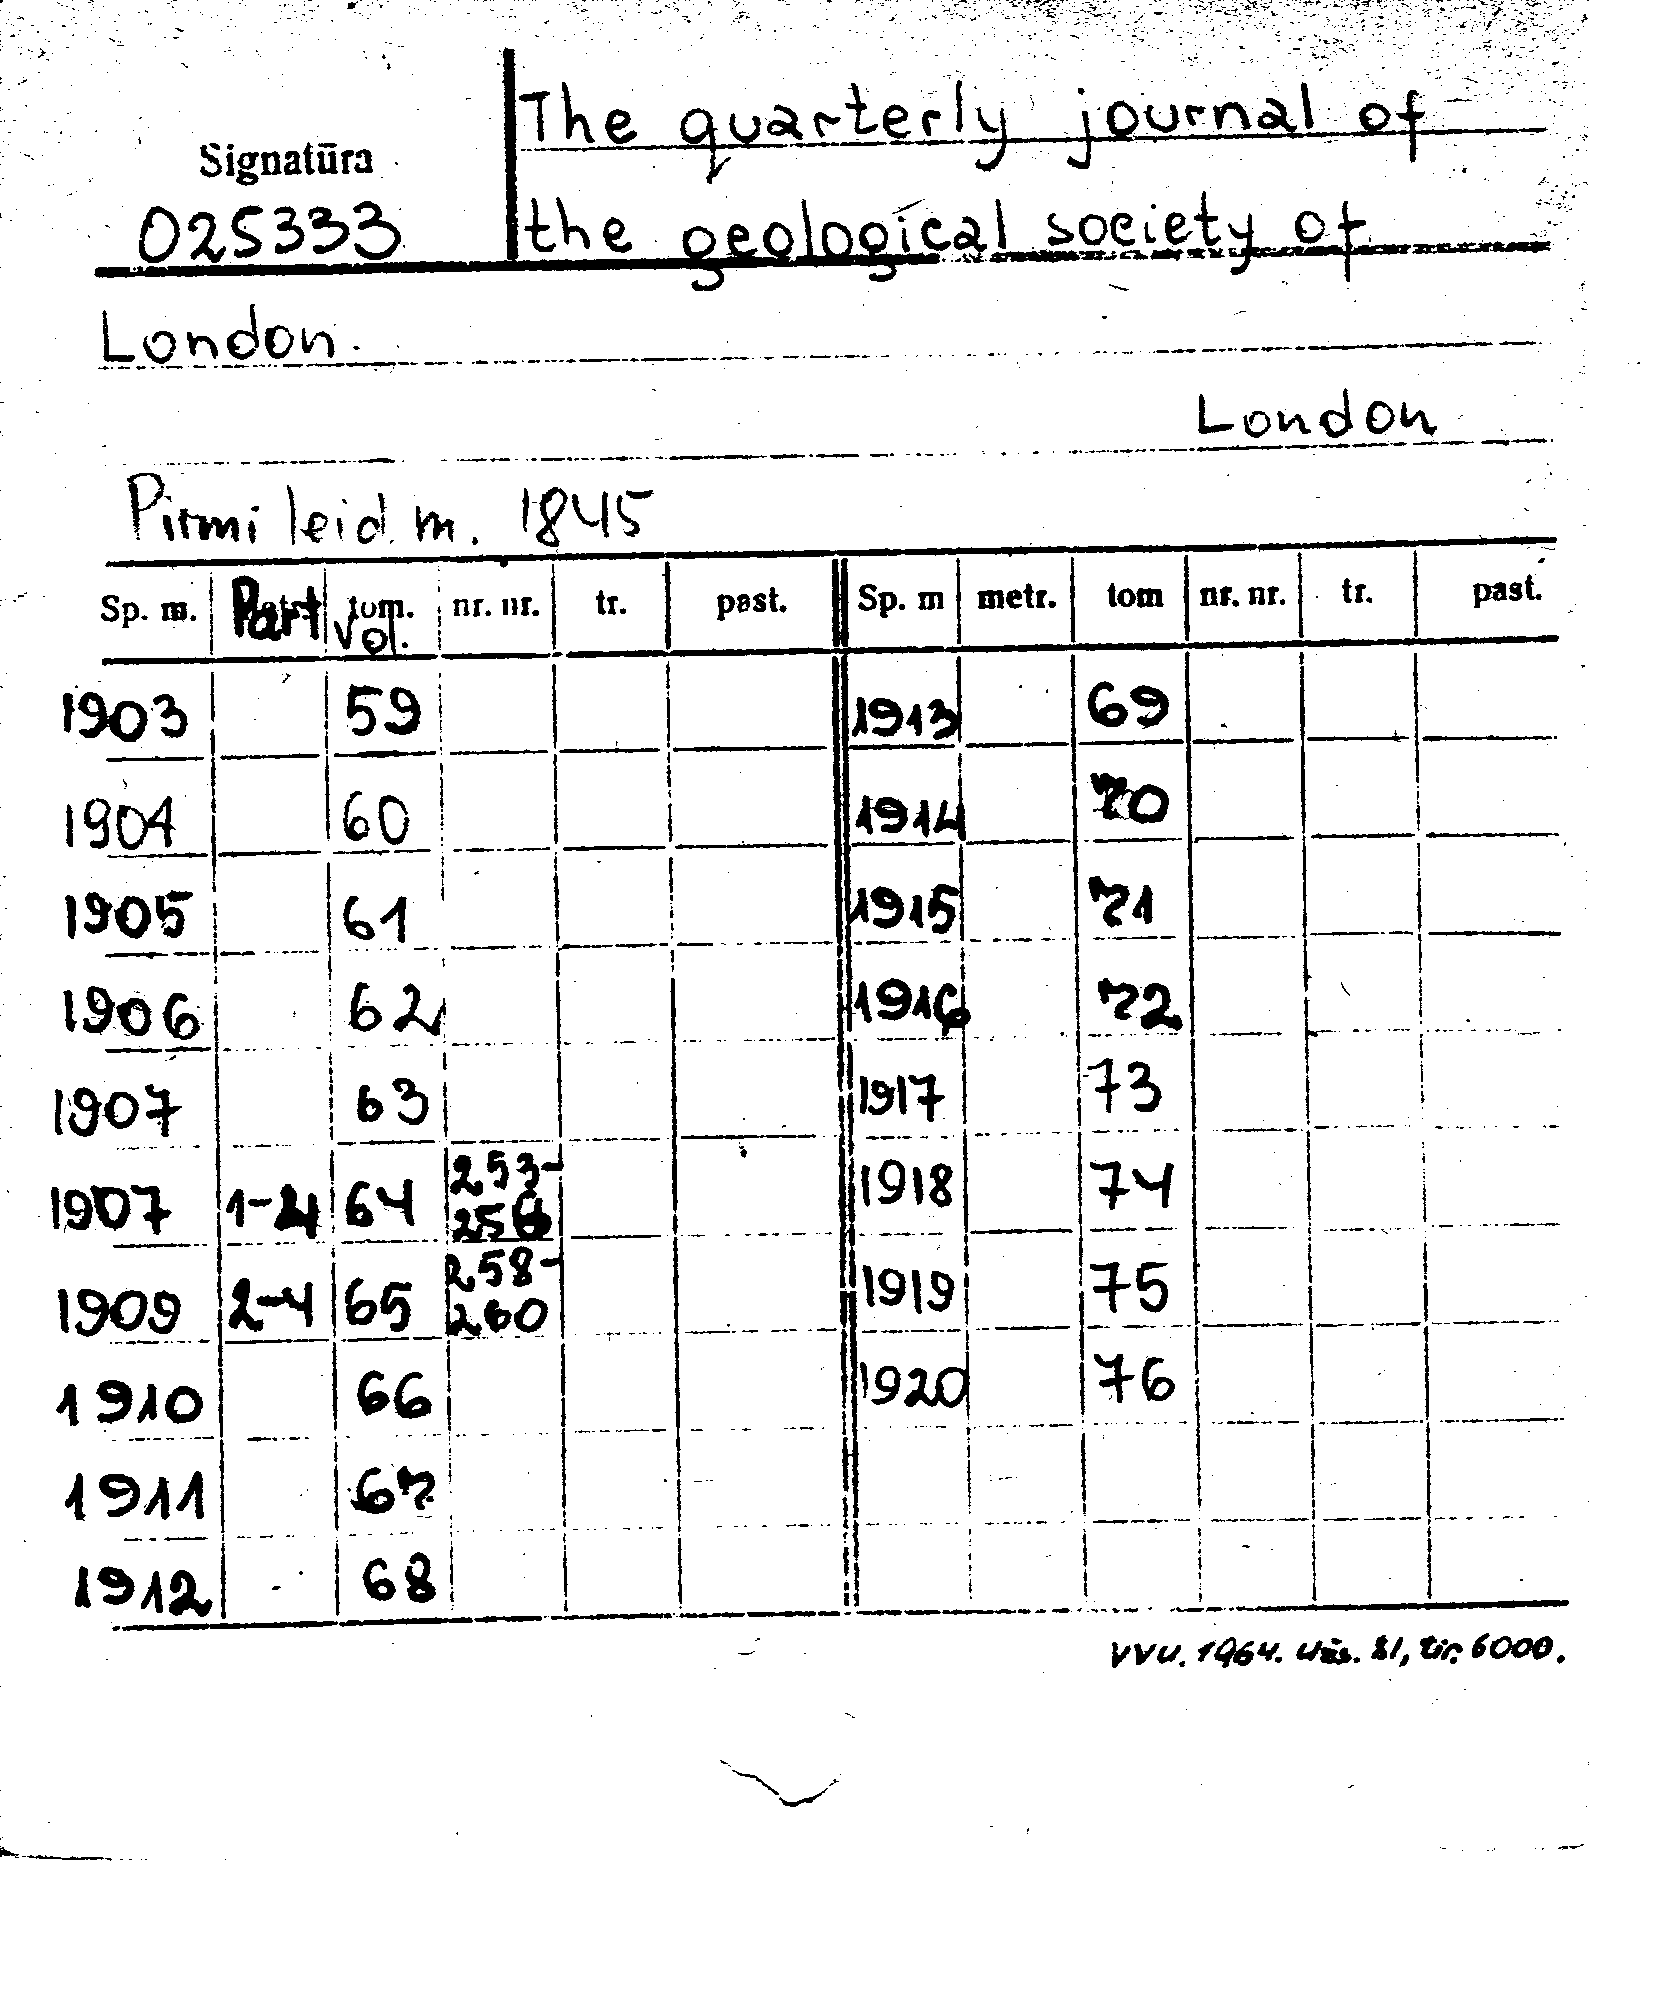 The quarterly journal of
Signatūra
025333
the geological society of
London.
London
Pirmi leid. m. 1845
Sp. m. Part tom. nr. nr. tr. past. Sp. m metr. tom nr. nr. tr. past.
Vol.
1903 59 1913 69
1904 60 1914 70
1905 61 1915 71
1906 62 1916 72
1907 63 1917 73
1907 1-4 64 253-256 1918 74
1909 2-4 65 258-260 1919 75
1910 66 1920 76
1911 67
1912 68
VVU. 1964. Užs. 81, tir. 6000.